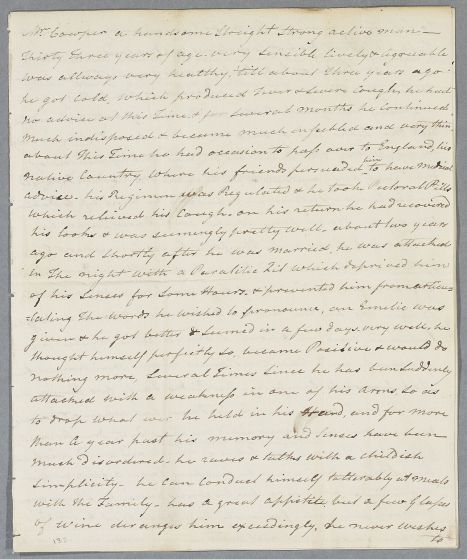 Mr. Cowper a handsome Streight Strong active man—
Thirty Three years of age. very Sencible lively & agreeable
was allways very healthy, till about Three years ago
he got Cold, which produced Fever & Severe Cough, he had
no advice at this Time & for Several months he Continued
Much indisposed & became much enfeebled and very thin,
about This Time he had occasion to pass over to England, his
native Country, where his friends persuaded him to have Medical
advice. his Regimen was Regulated & he took Pectoral Pills
which relieved his Cough. on his return he had recovered
his looks & was seemingly pretty well. about two years
ago and Shortly after he was married, he was attacked
in The night with a Paralitic Fit which deprived him
of his Senses for Some Hours. & prevented him from articu=
=lating The words he wished to pronounce, an Emetic was
given & he got better & Seemed in a few days very well, he
thought himself perfectly so, became Positive & would do
nothing more, Several Times Since he has been Suddenly
attacked with a weakness in one of his Arms, So as
to drop what ever he held in his Hand, and for more
than a year past his memory and Senses have been
much disordered. he raves & talks with a childish
Simplicity- he can conduct himself tollerably at meals
with the Family- has a great appetite, but a few Glasses
of wine deranges him exceedingly, he never wishes
to